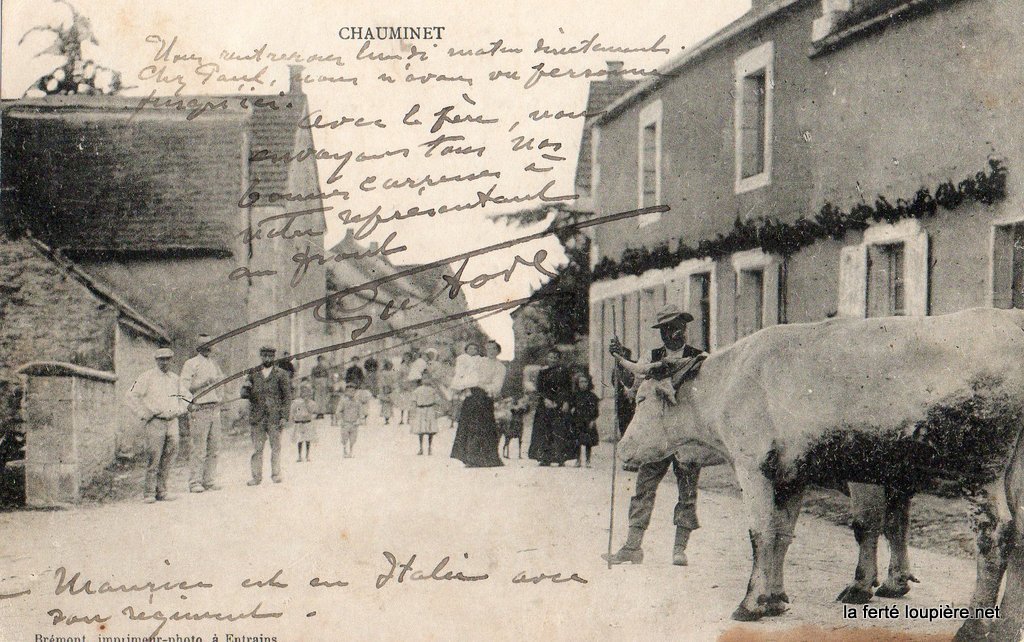 CHAUMINET
Vous rentrerons lundi matin directement
Chez Paul, nous n'avons vu personne
jusqu'ici.
Avec le père, vous
envoyons tous nos
bonnes caresses à
votre représentant
au front
Gustave
Maurice est en Italie avec
son régiment.
Brémont, imprimeur-photo, à Entrains
la ferté loupière.net